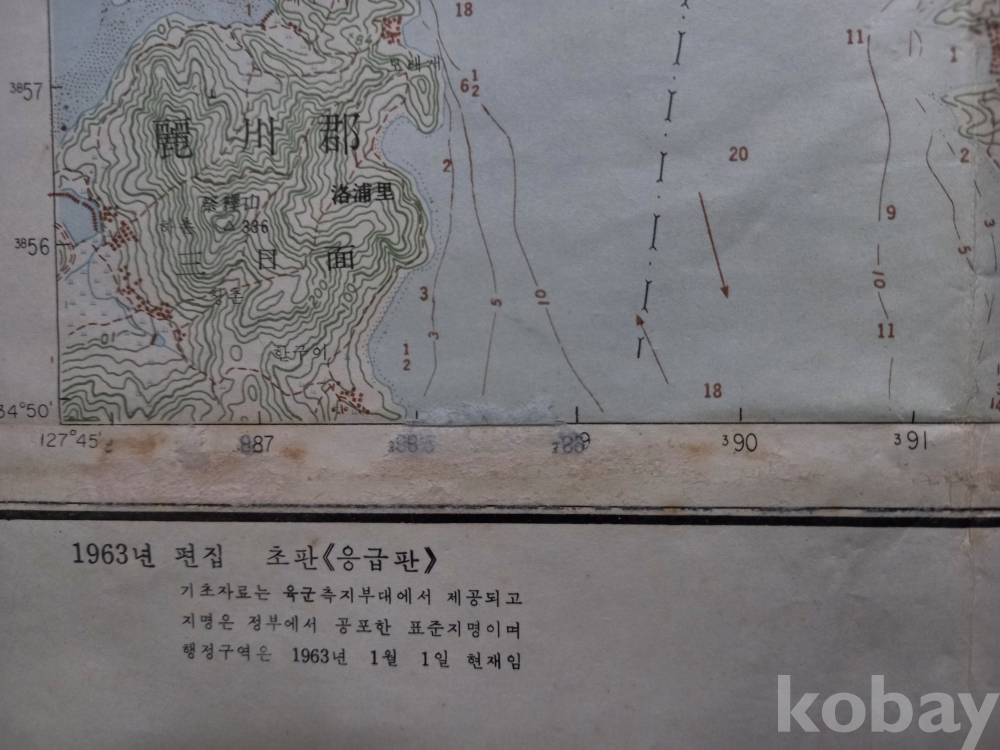 18
11
1
모래개
6 1/2
3857
麗川郡
20
2
2
洛浦里
336
9
3
3856
三日面
5
200
3
5
10
10
3
11
1
2
한구미
18
34°50'
127°45'
887
390
391
1963년 편집 초판《응급판》
기초자료는 육군측지부대에서 제공되고
지명은 정부에서 공포한 표준지명이며
행정구역은 1963년 1월 1일 현재임
kobay